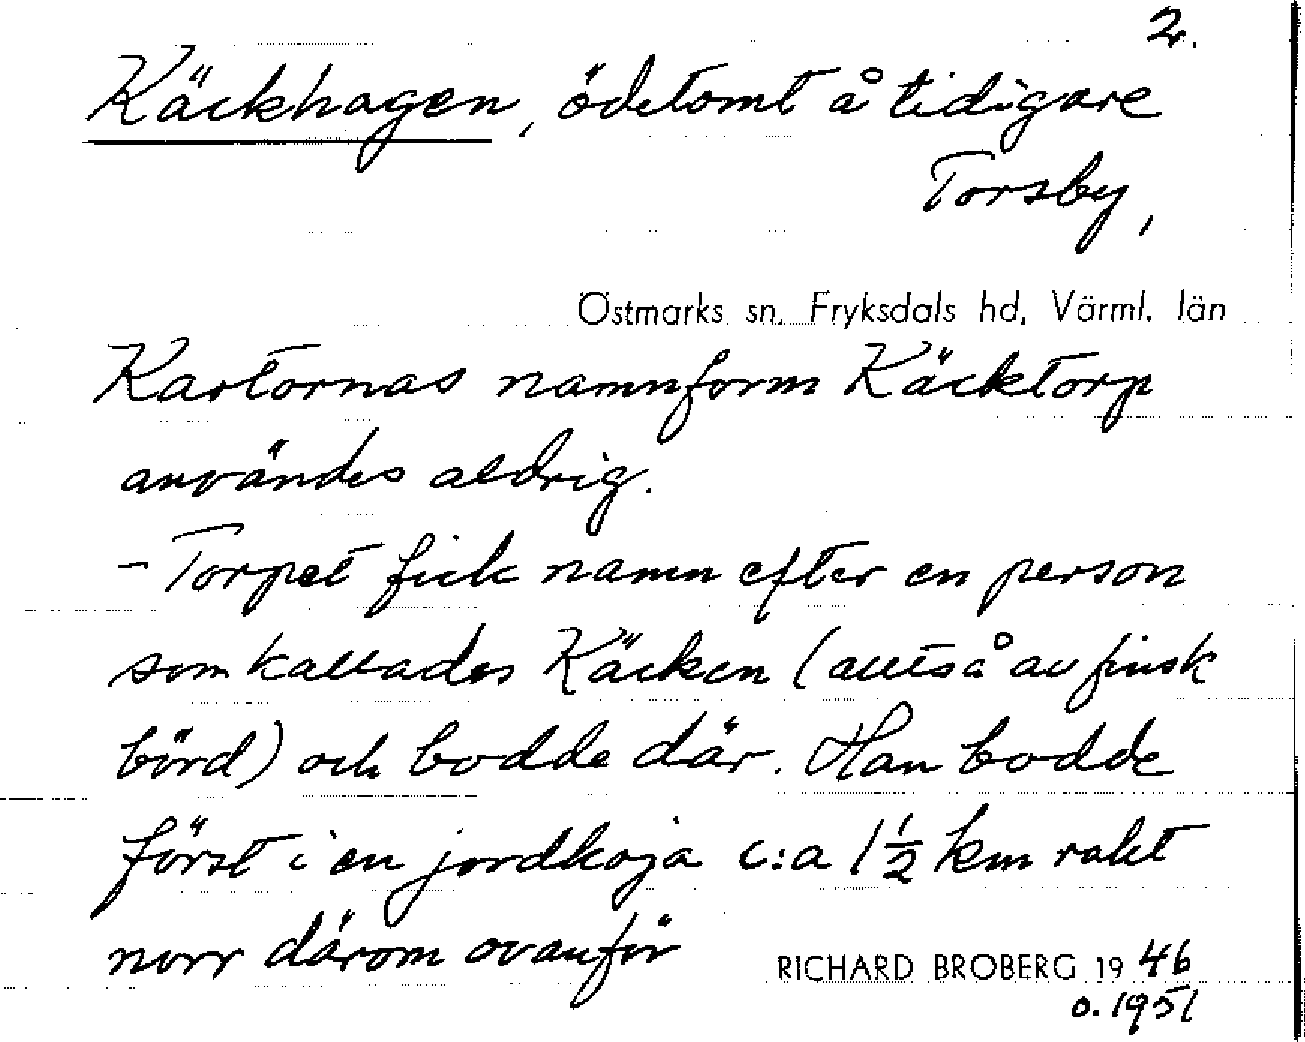 2.
Käckhagen, ödetomt å tidigare
Torsby,
Östmarks sn. Fryksdals hd, Värml. län
Kartornas namnform Käcktorp
användes aldrig.
- Torpet fick namn efter en person
som kallades Käcken (alltså av finsk
börd) och bodde där. Han bodde
först i en jordkoja c:a 1 1/2 km rakt
norr därom ovanför
RICHARD BROBERG 19 46
o. 1951